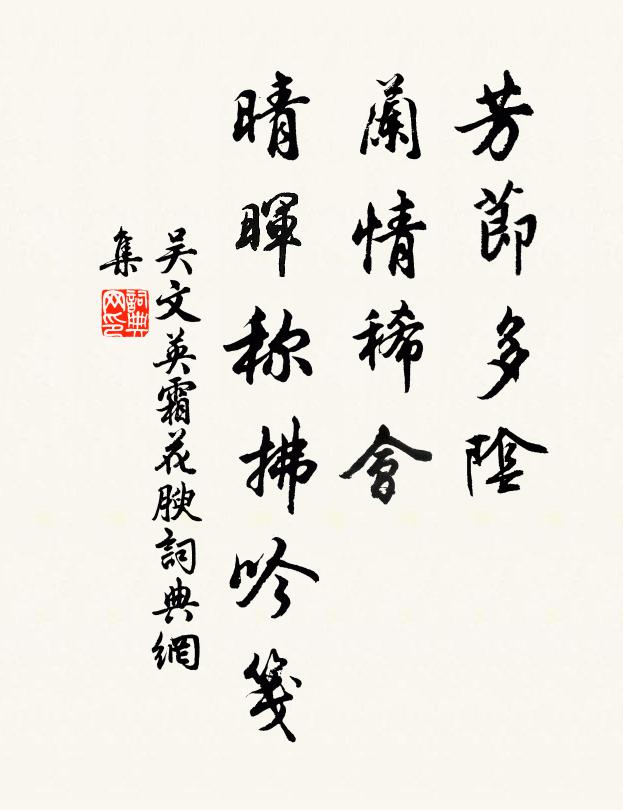 芳節多陰
蘭情稀會
晴暉称拂吟箋
吴文英霜花腴詞典網
集
詞典
网印